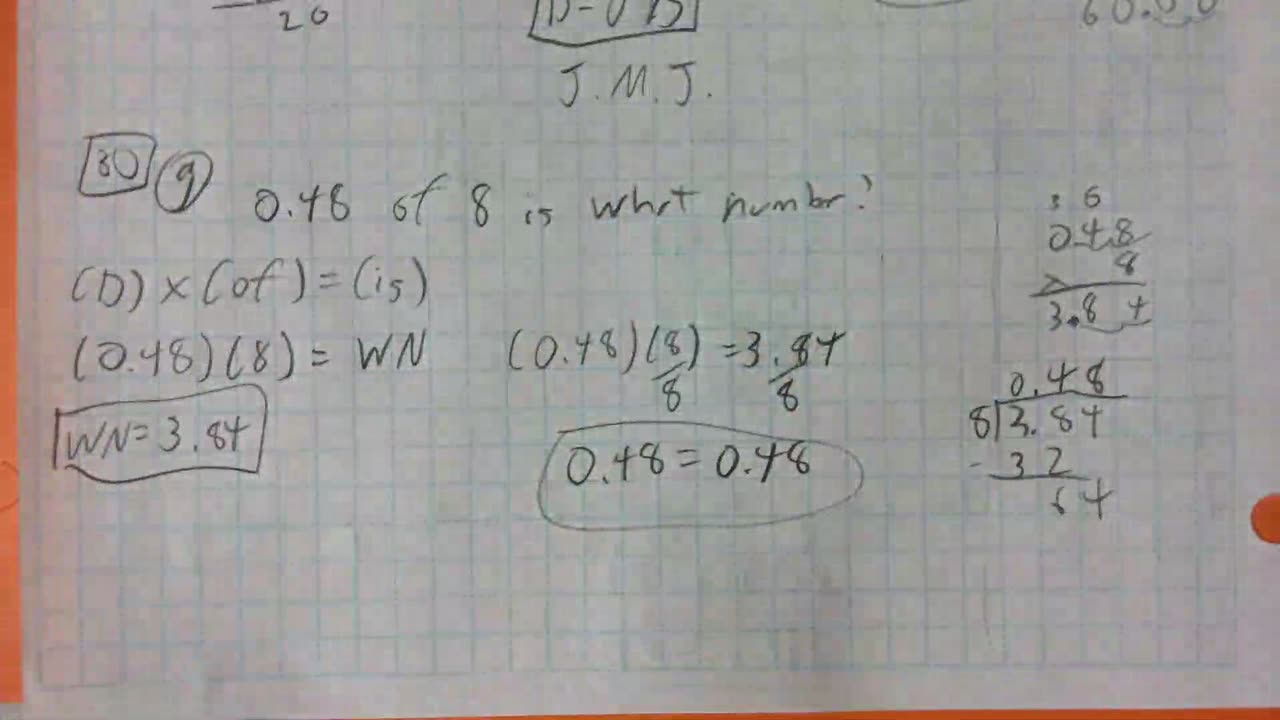 20
60.00
J.M.J.
30 9 0.48 of 8 is what numbr?
(D) x (of) = (is)
(0.48)(8) = WN
WN = 3.84
(0.48)(8) = 3.84
8 8
0.48 = 0.48
3 6
0.48
x 8
3.84
0.48
8 3.84
- 32
64